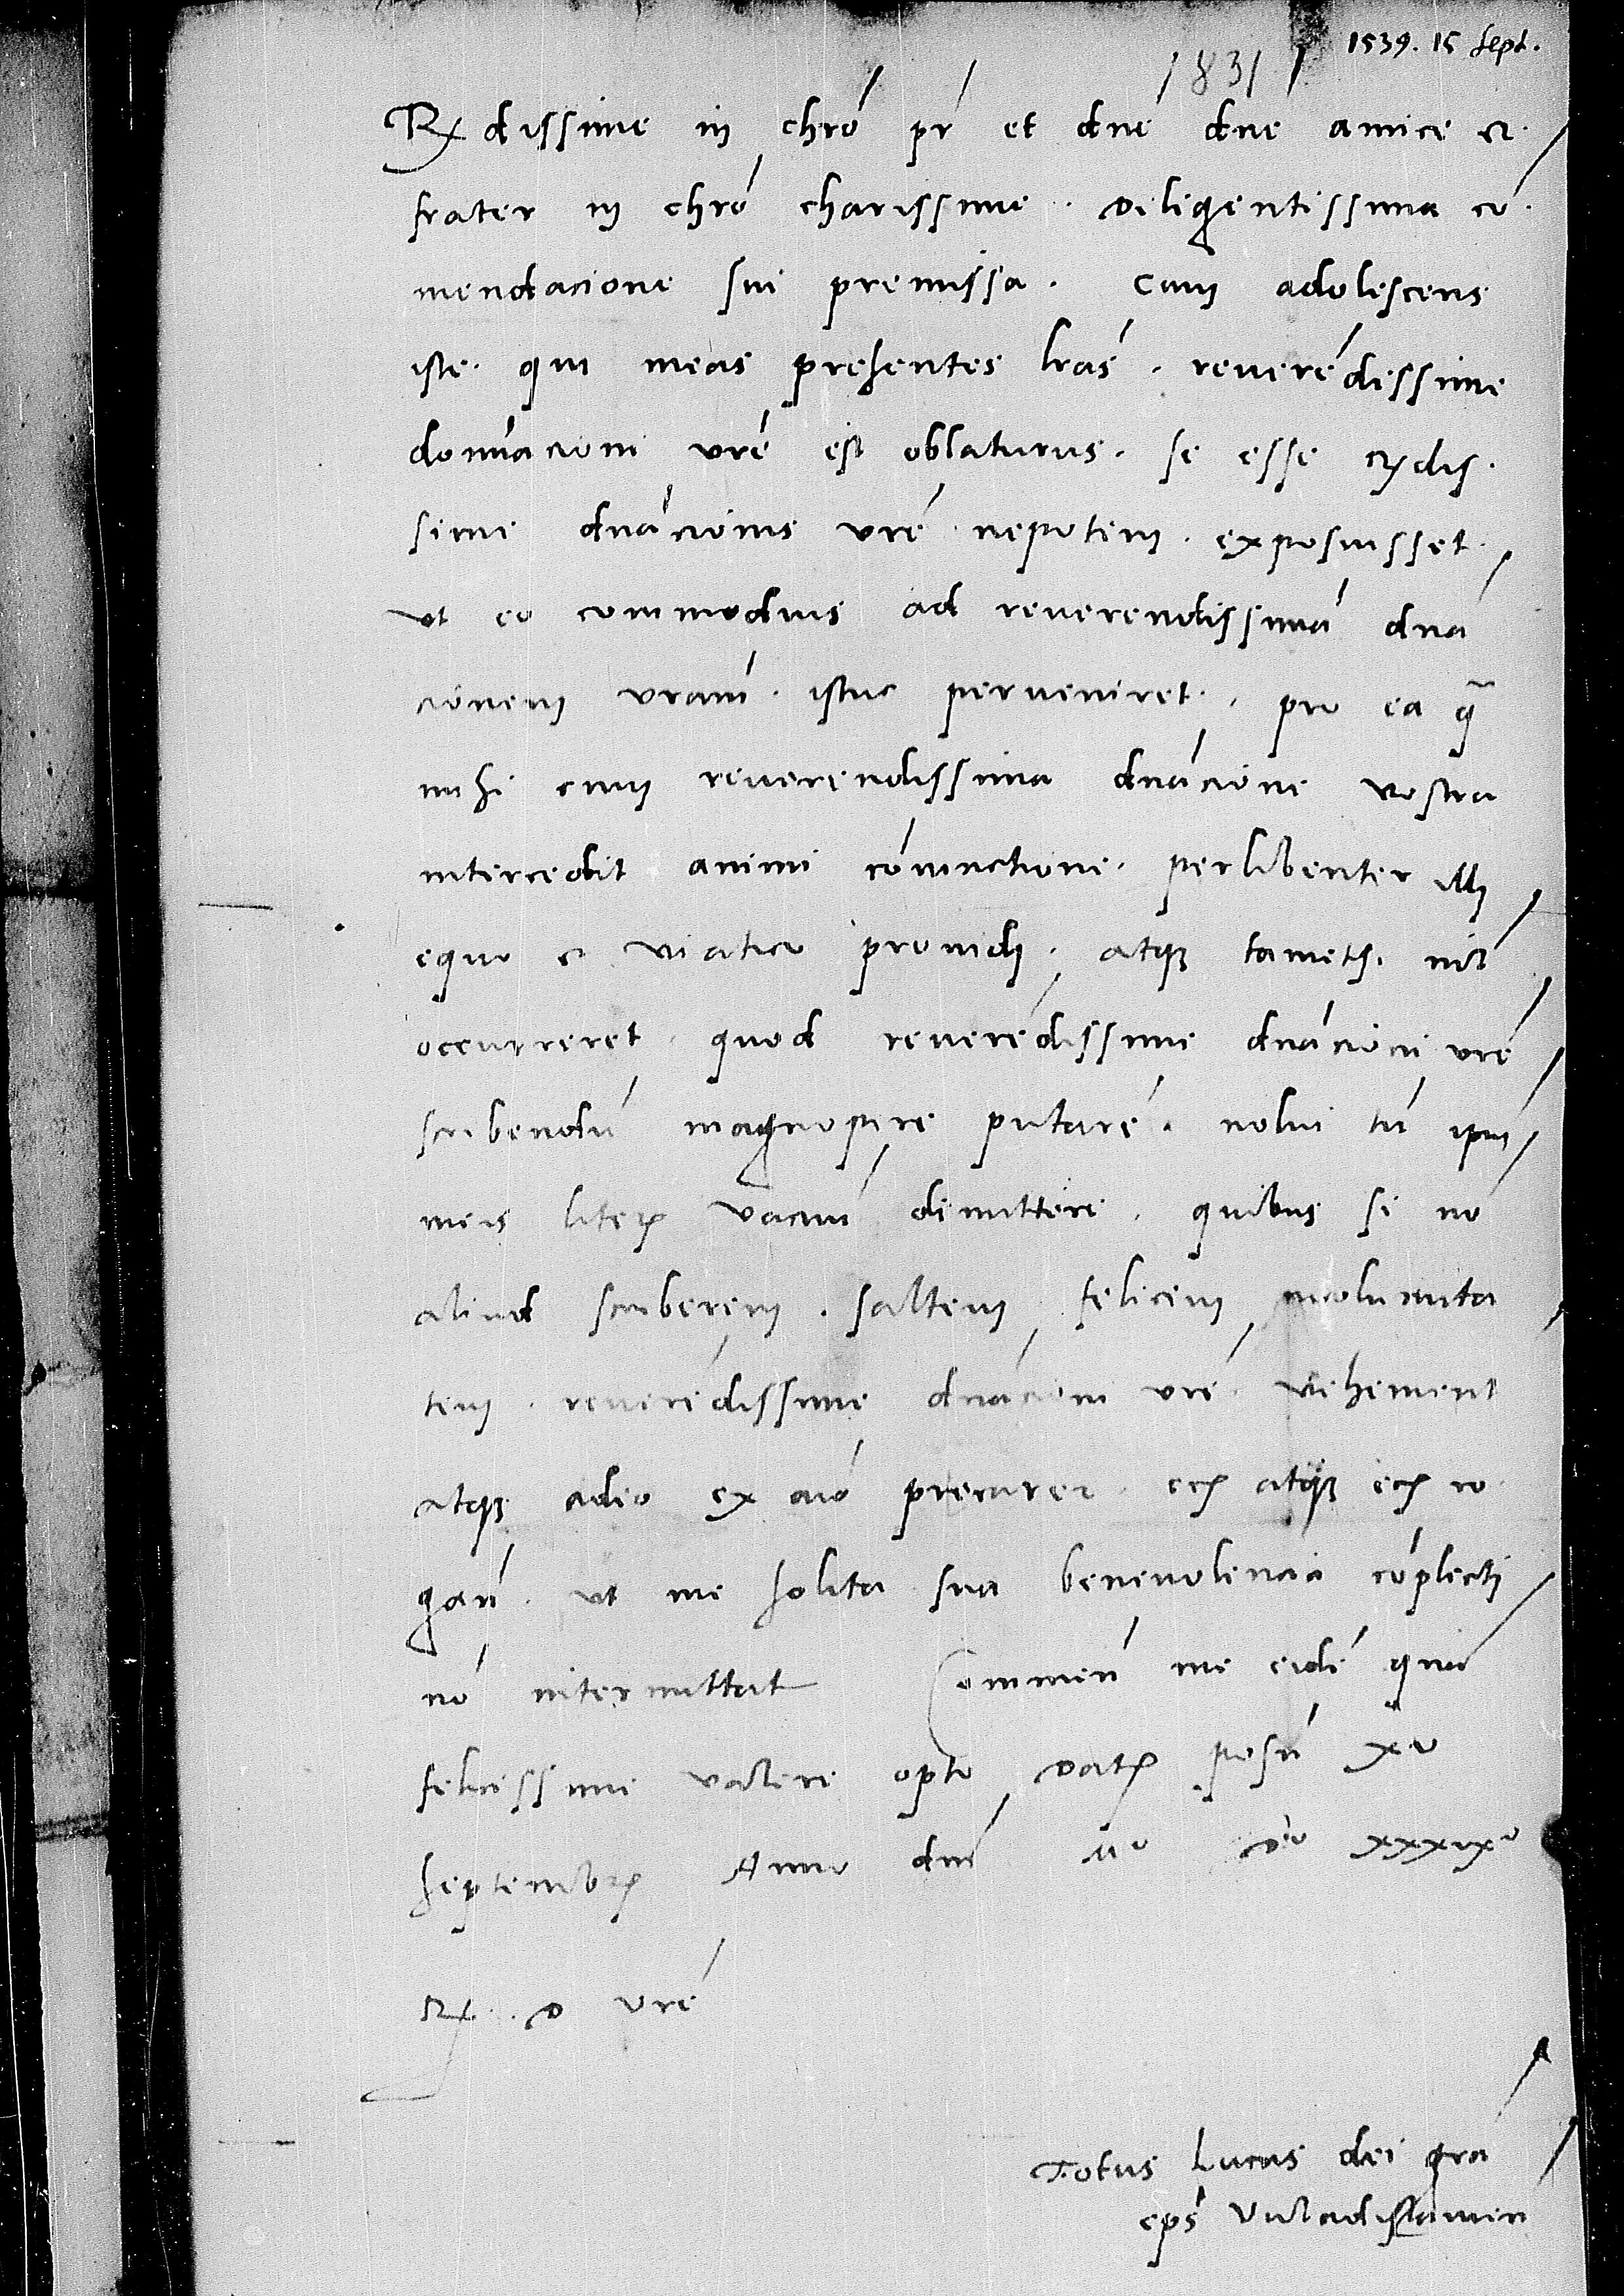 1539. 15 Sept.
1831
Rdissime in chro pr et dne dne amice et
frater in chro charissime. Diligentissima co
mendacione sui premissa. Cum adolescens
iste. qui meas presentes lras. reueredissime
dominacioni vre est oblaturus. se esse Rdis
sime dnacionis vre nepotem. exposuisset.
vt eo commodius ad reuerendissima dna
cionem vram. istuc perueniret. pro ea q
mihi cum reuerendissima dnacione vostra
intercedit animi coniunctione. perlibenter illi
equo et viatico prouidi. atque tametsi. nil
occurreret. quod reueredissime dnacioni vre
scribendu magnopere putare. nolui tn ipm
meis literis vacuu dimittere. quibus si no
aliud scriberem. saltem felicem incolumita
tem. reueredissime dnacioni vre. vehement
atque adeo ex aio precarer. eciam atque eciam ro
gan. vt me solita sua beneuolencia coplecti
no intermittat Commen me eide qua
felicissime valere opto Datum poson xv
septembris Anno dni Mo Do xxxixo
R. D vre
Totus Lucas dei gra
eps